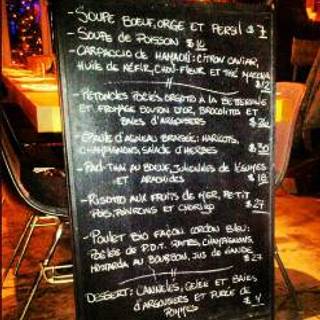 - SOUPE BOEUF, ORGE ET PERSIL $ 7
- SOUPE DE POISSON $ 10
- CARPACCIO DE HAMACHI: CITRON CAVIAR,
HUILE DE KÉFIR, CHOU-FLEUR ET THÉ MATCHA
$12
- PÉTONCLES POÊLÉS, ORZOTTO À LA BETTERAVE
ET FROMAGE BOUTON D'OR, BROCOLITIS ET
BAIES D'ARGOUSIERS
- ÉPAULE D'AGNEAU BRAISÉE: HARICOTS,
CHAMPIGNONS, SALADE D'HERBES $30
- PAD-THAI AU BOEUF, JULIENNES DE LÉGUMES
ET ARACHIDES
- RISOTTO AUX FRUITS DE MER, PETIT
POIS, POIVRONS ET CHORIZO $27
- POULET BIO FAÇON CORDON BLEU:
POÊLÉE DE P.D.T. RATTES, CHAMPIGNONS,
MOUTARDE AU BOURBON, JUS DE VIANDE
$27
DESSERT: CANNELÉS, GELÉE ET BAIES
D'ARGOUSIERS ET PURÉE DE
POMMES